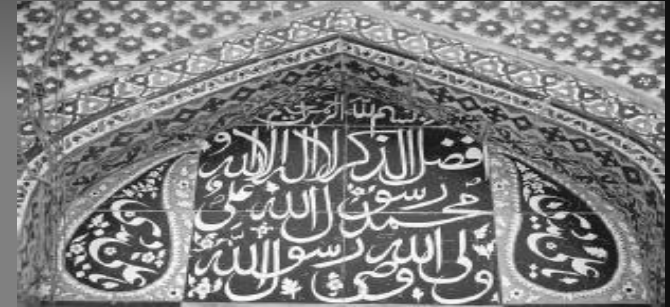 بسم الله الرحمن الرحیم
فضل الذکر لا اله الا الله و
محمد رسول الله علی
ولی الله وصی رسول الله